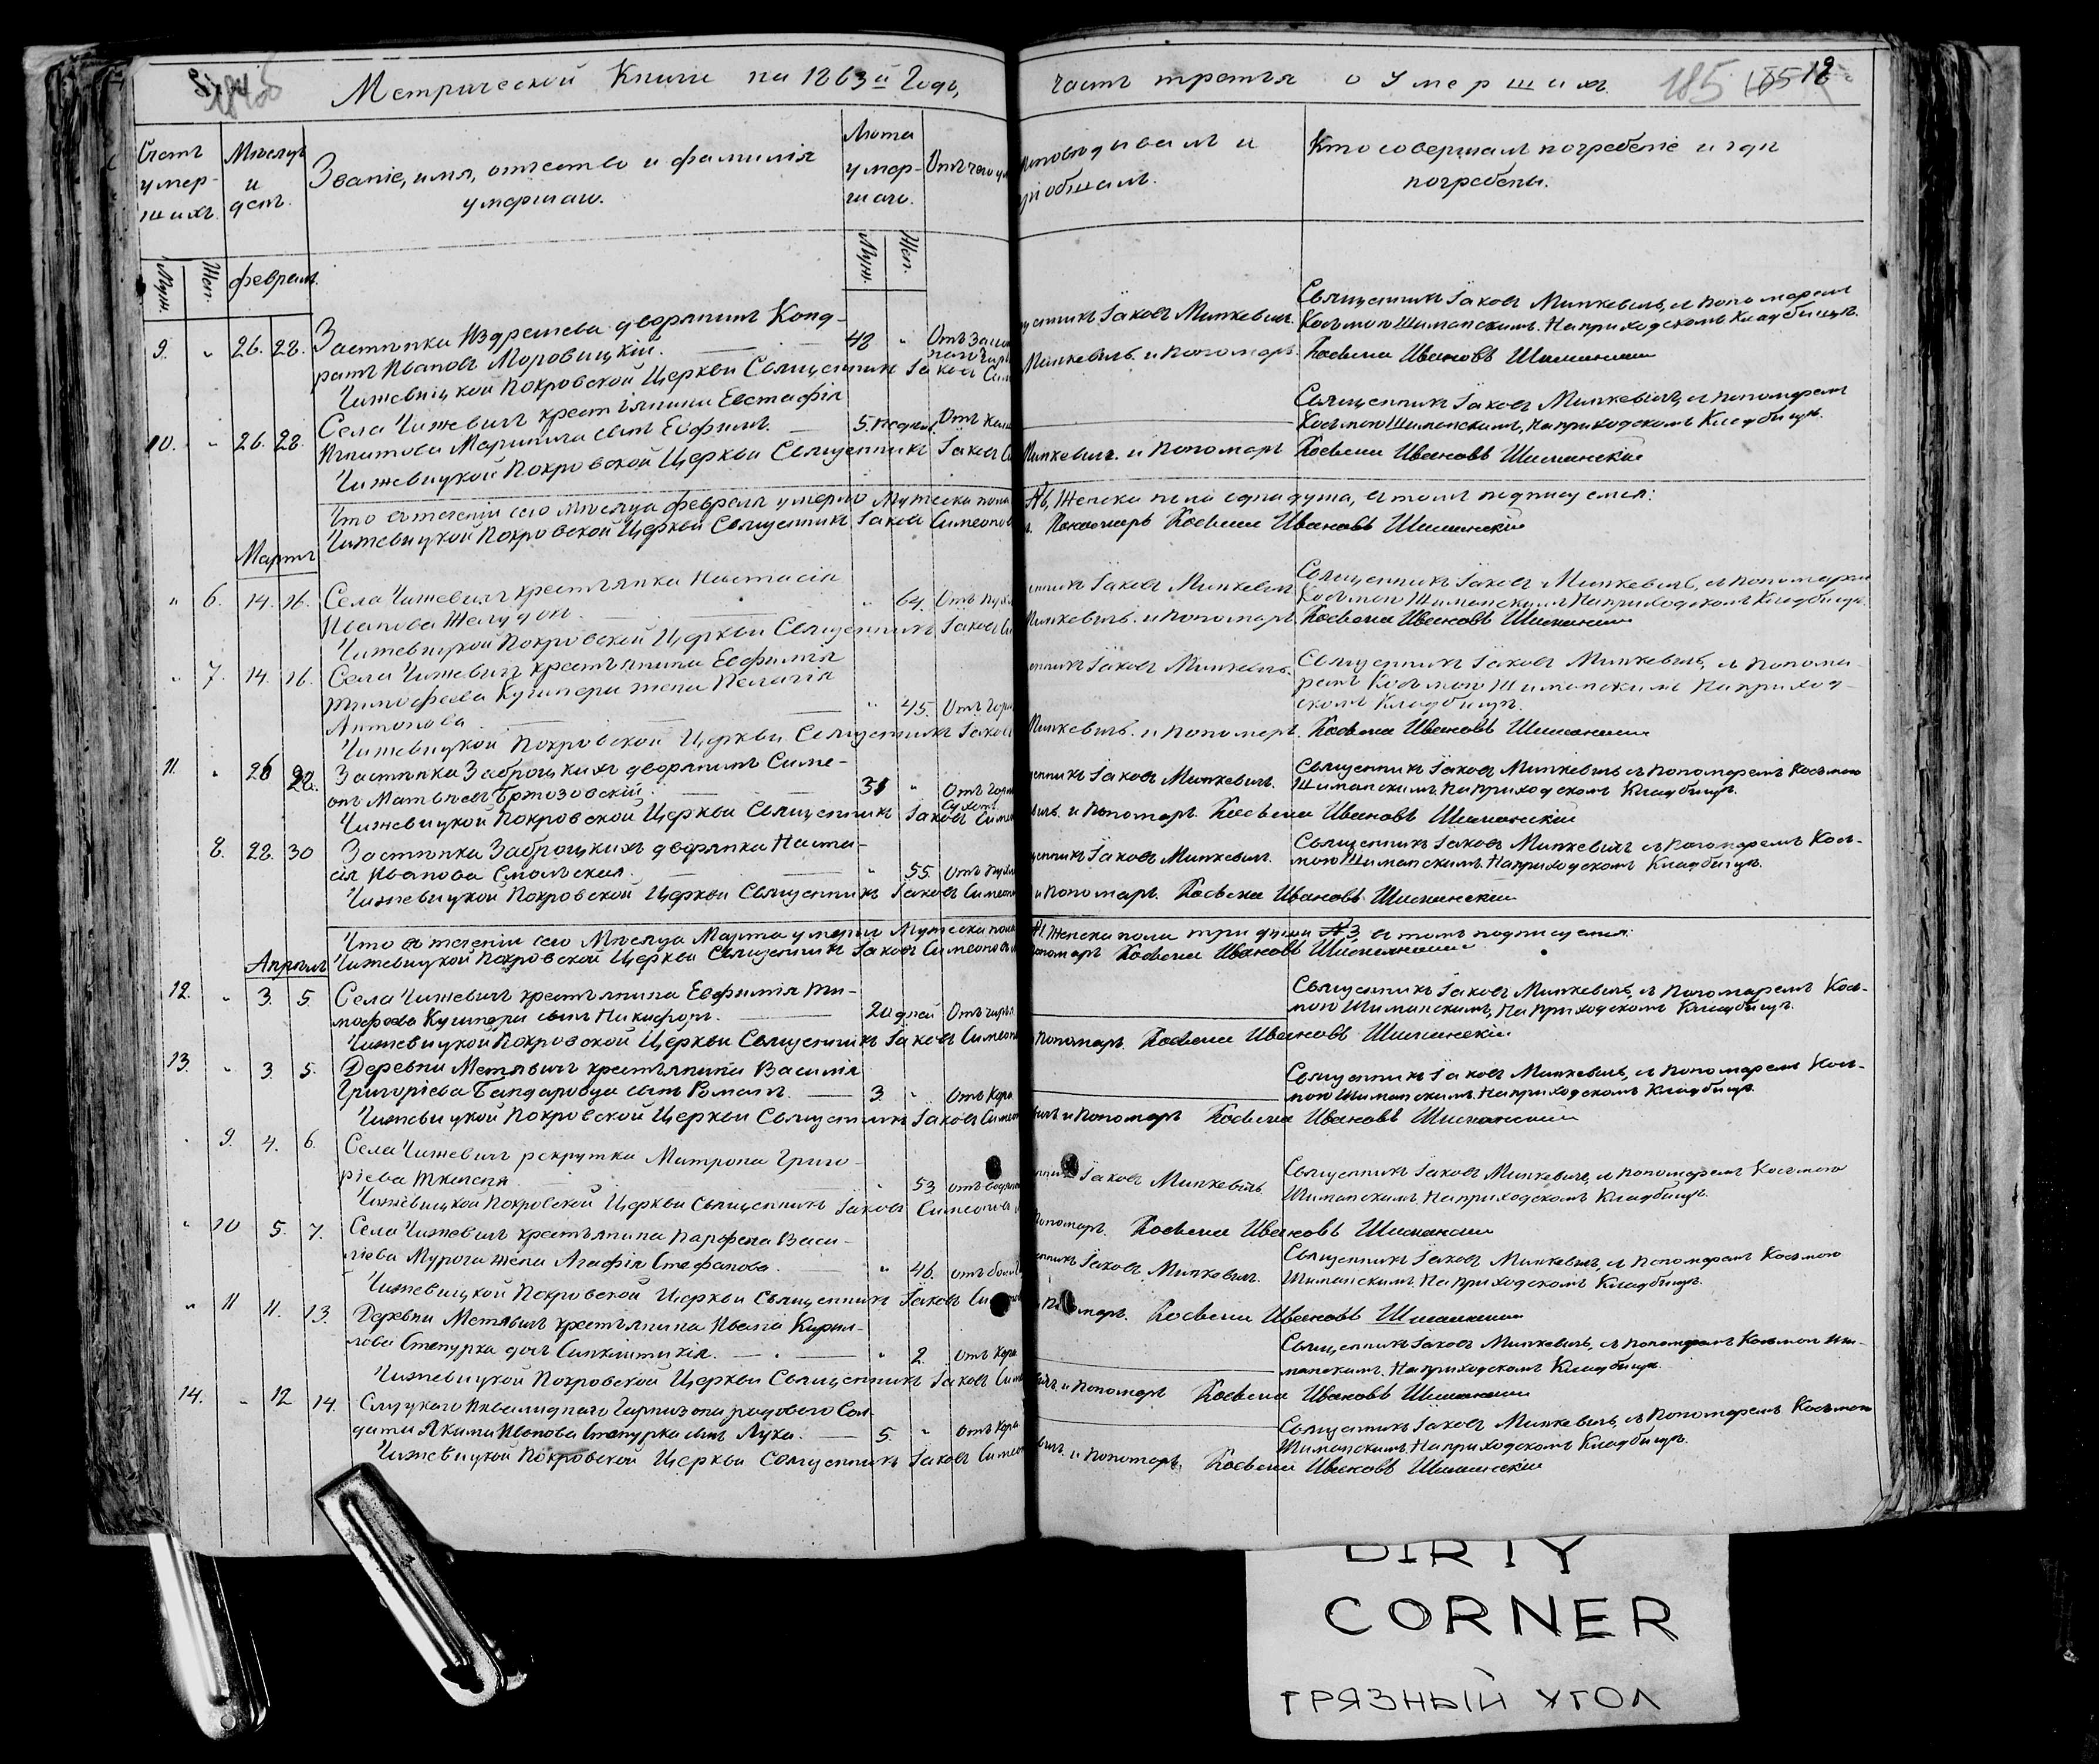 Метрической Книги на 1863й Годъ,
Счетъ умер-шихъ.
Мѣсяцъ и день.
Званіе, имя, отчество и фамилія умершаго.
Лѣта умер-шаго.
Отъ чего
Муж.
Жен.
февраль.
Муж.
Жен.
9. " 26. 28. Застѣнка Издрешева дворянинъ Конд-
ратъ Ивановъ Моровицкій. 48 "
Чижевицкой Покровской Церкви Священникъ Іаковъ
10. " 26. 28. Села Чижевичъ крестьянина Евстафія
сынъ Евфимъ. 5 недѣль
Чижевицкой Покровской Церкви Священникъ Іаковъ
Что въ теченіи сего Мѣсяца февраля умерло Мужеска пола
Чижевицкой Покровской Церкви Священникъ Іаковъ Симеонов
Мартъ
" 6. 14. 16. Села Чижевичъ крестьянка Настасія
Иванова Желудок " 64.
Чижевицкой Покровской Церкви Священникъ Іаковъ
" 7. 14. 16. Села Чижевичъ крестьянина Евфимія
Тимофеева Кушнера жена Пелагія
Антонова " 45. Отъ
Чижевицкой Покровской Церкви Священникъ Іаковъ
11. " 26 28. Застѣнка Заброцкихъ дворянинъ Симе-
онъ Матвѣевъ Бржозовскій. 31 " Отъ
Чижевицкой Покровской Церкви Священникъ Іаковъ
8. 28. 30 Застѣнка Заброцкихъ дворянка Наста-
сія Иванова Смольская. " 55. Отъ
Чижевицкой Покровской Церкви Священникъ Іаковъ Симеон
Что въ теченіи сего Мѣсяца Марта умерло Мужеска пола
Чижевицкой Покровской Церкви Священникъ Іаковъ Симеонов
Апрѣль
12. " 3. 5 Села Чижевичъ крестьянина Евфимія Ти-
мофеева Кушнера сынъ Никифоръ. 20 дней Отъ
Чижевицкой Покровской Церкви Священникъ Іаковъ Симеон
13. " 3. 5. Деревни Метявичъ крестьянина Василія
Григоріева Бандаровца сынъ Романъ. 3 " Отъ Кора
Чижевицкой Покровской Церкви Священникъ Іаковъ
" 9. 4. 6. Села Чижевичъ рекрутка Матрона Григо-
ріева " 53 отъ
Чижевицкой Покровской Церкви Священникъ Іаковъ Симеонов
" 10 5. 7. Села Чижевичъ крестьянина Парфена Васи-
ліева Мурога жена Агафія Стефанова. " 46. отъ
Чижевицкой Покровской Церкви Священникъ Іаковъ
" 11 11. 13. Деревни Метявичъ крестьянина Ивана Кирил-
лова Степурка дочь Синклитикія. " 2. отъ Кора
Чижевицкой Покровской Церкви Священникъ Іаковъ
14. " 12 14. Слуцкаго Инвалиднаго Гарнизона рядового Сол-
дата Якима Иванова Степурка сынъ Лука. 5. " отъ Кора
Чижевицкой Покровской Церкви Священникъ Іаковъ Симеон
часть третья о Умершихъ. 185
исповѣдывалъ и
Кто совершалъ погребеніе и гдѣ погребены.
Іаковъ Минкевичъ. Священникъ Іаковъ Минкевичъ, съ пономаремъ
Косьмою Шиманскимъ. На приходскомъ Кладбищѣ.
Минкевичъ. и пономарь. Косьма Ивановъ Шиманскій
Священникъ Іаковъ Минкевичъ, съ пономаремъ
Косьмою Шиманскимъ, На приходскомъ Кладбищѣ.
Минкевичъ. и пономарь Косьма Ивановъ Шиманскій
Женска пола одна душа, въ томъ подписуемся:
Пономарь Косьма Ивановъ Шиманскій
Іаковъ Минкевичъ Священникъ Іаковъ Минкевичъ, съ пономаремъ
Косьмою Шиманскимъ На приходскомъ Кладбищѣ.
Минкевичъ. и пономарь. Косьма Ивановъ Шиманскій
Іаковъ Минкевичъ. Священникъ Іаковъ Минкевичъ, съ понома-
ремъ Косьмою Шиманскимъ На приход-
скомъ Кладбищѣ.
Минкевичъ. и пономарь. Косьма Ивановъ Шиманскій
Іаковъ Минкевичъ. Священникъ Іаковъ Минкевичъ съ пономаремъ Косьмою
Шиманскимъ. На приходскомъ Кладбищѣ.
и пономарь. Косьма Ивановъ Шиманскій
Іаковъ Минкевичъ. Священникъ Іаковъ Минкевичъ съ пономаремъ Кось-
мою Шиманскимъ. На приходскомъ Кладбищѣ.
и пономарь. Косьма Ивановъ Шиманскій
Женска пола три души 3, въ томъ подписуемся:
пономарь Косьма Ивановъ Шиманскій
Священникъ Іаковъ Минкевичъ, съ Пономаремъ Кось-
мою Шиманскимъ, На приходскомъ Кладбищѣ.
пономарь. Косьма Ивановъ Шиманскій
Священникъ Іаковъ Минкевичъ, съ пономаремъ Кось-
мою Шиманскимъ. На приходскомъ Кладбищѣ.
и пономарь Косьма Ивановъ Шиманскій
Іаковъ Минкевичъ. Священникъ Іаковъ Минкевичъ, съ пономаремъ Косьмою
Шиманскимъ. На приходскомъ Кладбищѣ.
пономарь. Косьма Ивановъ Шиманскій
Іаковъ Минкевичъ. Священникъ Іаковъ Минкевичъ, съ пономаремъ Косьмою
Шиманскимъ. На приходскомъ Кладбищѣ.
Косьма Ивановъ Шиманскій
Священникъ Іаковъ Минкевичъ, съ пономаремъ Косьмою Ши-
манскимъ. На приходскомъ Кладбищѣ.
и пономарь Косьма Ивановъ Шиманскій
Священникъ Іаковъ Минкевичъ, съ Пономаремъ Косьмою
Шиманскимъ. На приходскомъ Кладбищѣ.
и пономарь. Косьма Ивановъ Шиманскій
DIRTY
CORNER
ГРЯЗНЫЙ УГОЛ